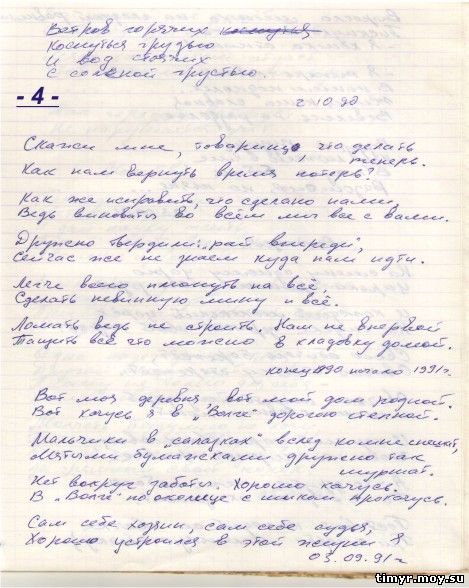 Ветров горячих коснуться
Коснуться грудью
И вод стоячих
С солёной грустью.
- 4 -
2.10.90
Скажи мне, товарищ, что делать
теперь.
Как нам вернуть время потерь?
Как же исправить, что сделано нами,
Ведь виноваты во всём мы все с вами.
Дружно твердили: "рай впереди",
Сейчас же не знаем куда нам идти.
Легче всего плюнуть на всё,
Сделать невинную мину и всё.
Ломать ведь не строить. Нам не впервой
Тащить всё что можно в кладовку домой.
конец 1990 начало 1991г.
Вот моя деревня, вот мой дом родной.
Вот качусь я в "Волге" дорогою степной.
Мальчики в "салазках" вслед за мной спешат,
Мятыми бумажками дружно так
шуршат.
Нет вокруг заботы. Хорошо качусь.
В "Волге" по околице с шиком прокачусь.
Сам себе хозяин, сам себе судья,
Хорошо устроился в этой жизни я
03.09.91г
timyr.moy.su